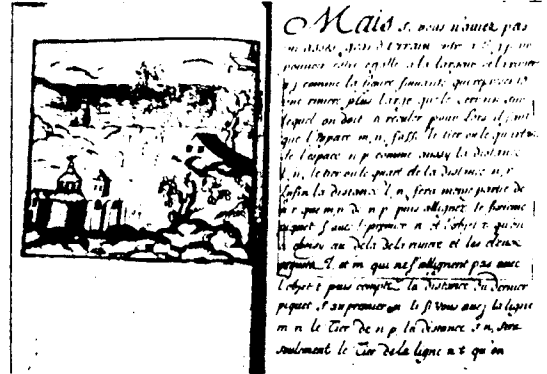 Mais si vous n'aviez pas
un assés grand terrain
pouvoir estre egalle a la largeur de la riviere
comme la figure suivante qui represente
une riviere plus large que le terrain sur
lequel on doit a reculer pour lors il faut
que l'espace m, n, fasse le tier ou le quart
de l'espace n p comme aussy la distance
l, n, le tier ou le quart de la distance n, r
Enfin la distance l, n, sera meme partie de
n r que m n de n p puis allignez le sixieme
piquet s avec le premier n et l'objet t qu'on
choisi au dela de la riviere et les deux
piquets l et m qui ne s'allignent pas avec
l'objet t puis comptez la distance du dernier
piquet s au premier n le si vous avez la ligne
m n le Tier de n p la distance s n, sera
seulement le Tier de la ligne n t qu'on